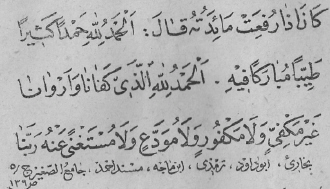 كَانَ اِذَا رُفِعَتْ مَائِدَتُهُ قَالَ : اَلْحَمْدُ لِلّٰهِ حَمْدًا كَثِيرًا
طَيِّبًا مُبَارَكًا فِيهِ . اَلْحَمْدُ لِلّٰهِ الَّذِى كَفَانَا وَاَرْوَانَا
غَيْرَ مَكْفِيٍّ وَلَا مَكْفُورٍ وَلَا مُوَدَّعٍ وَلَا مُسْتَغْنًى عَنْهُ رَبَّنَا
بخارى ، ابوداود ، ترمذى ، ابن ماجه ، مسند احمد ، جامع الصغير ج/٥
ص ١٣٦